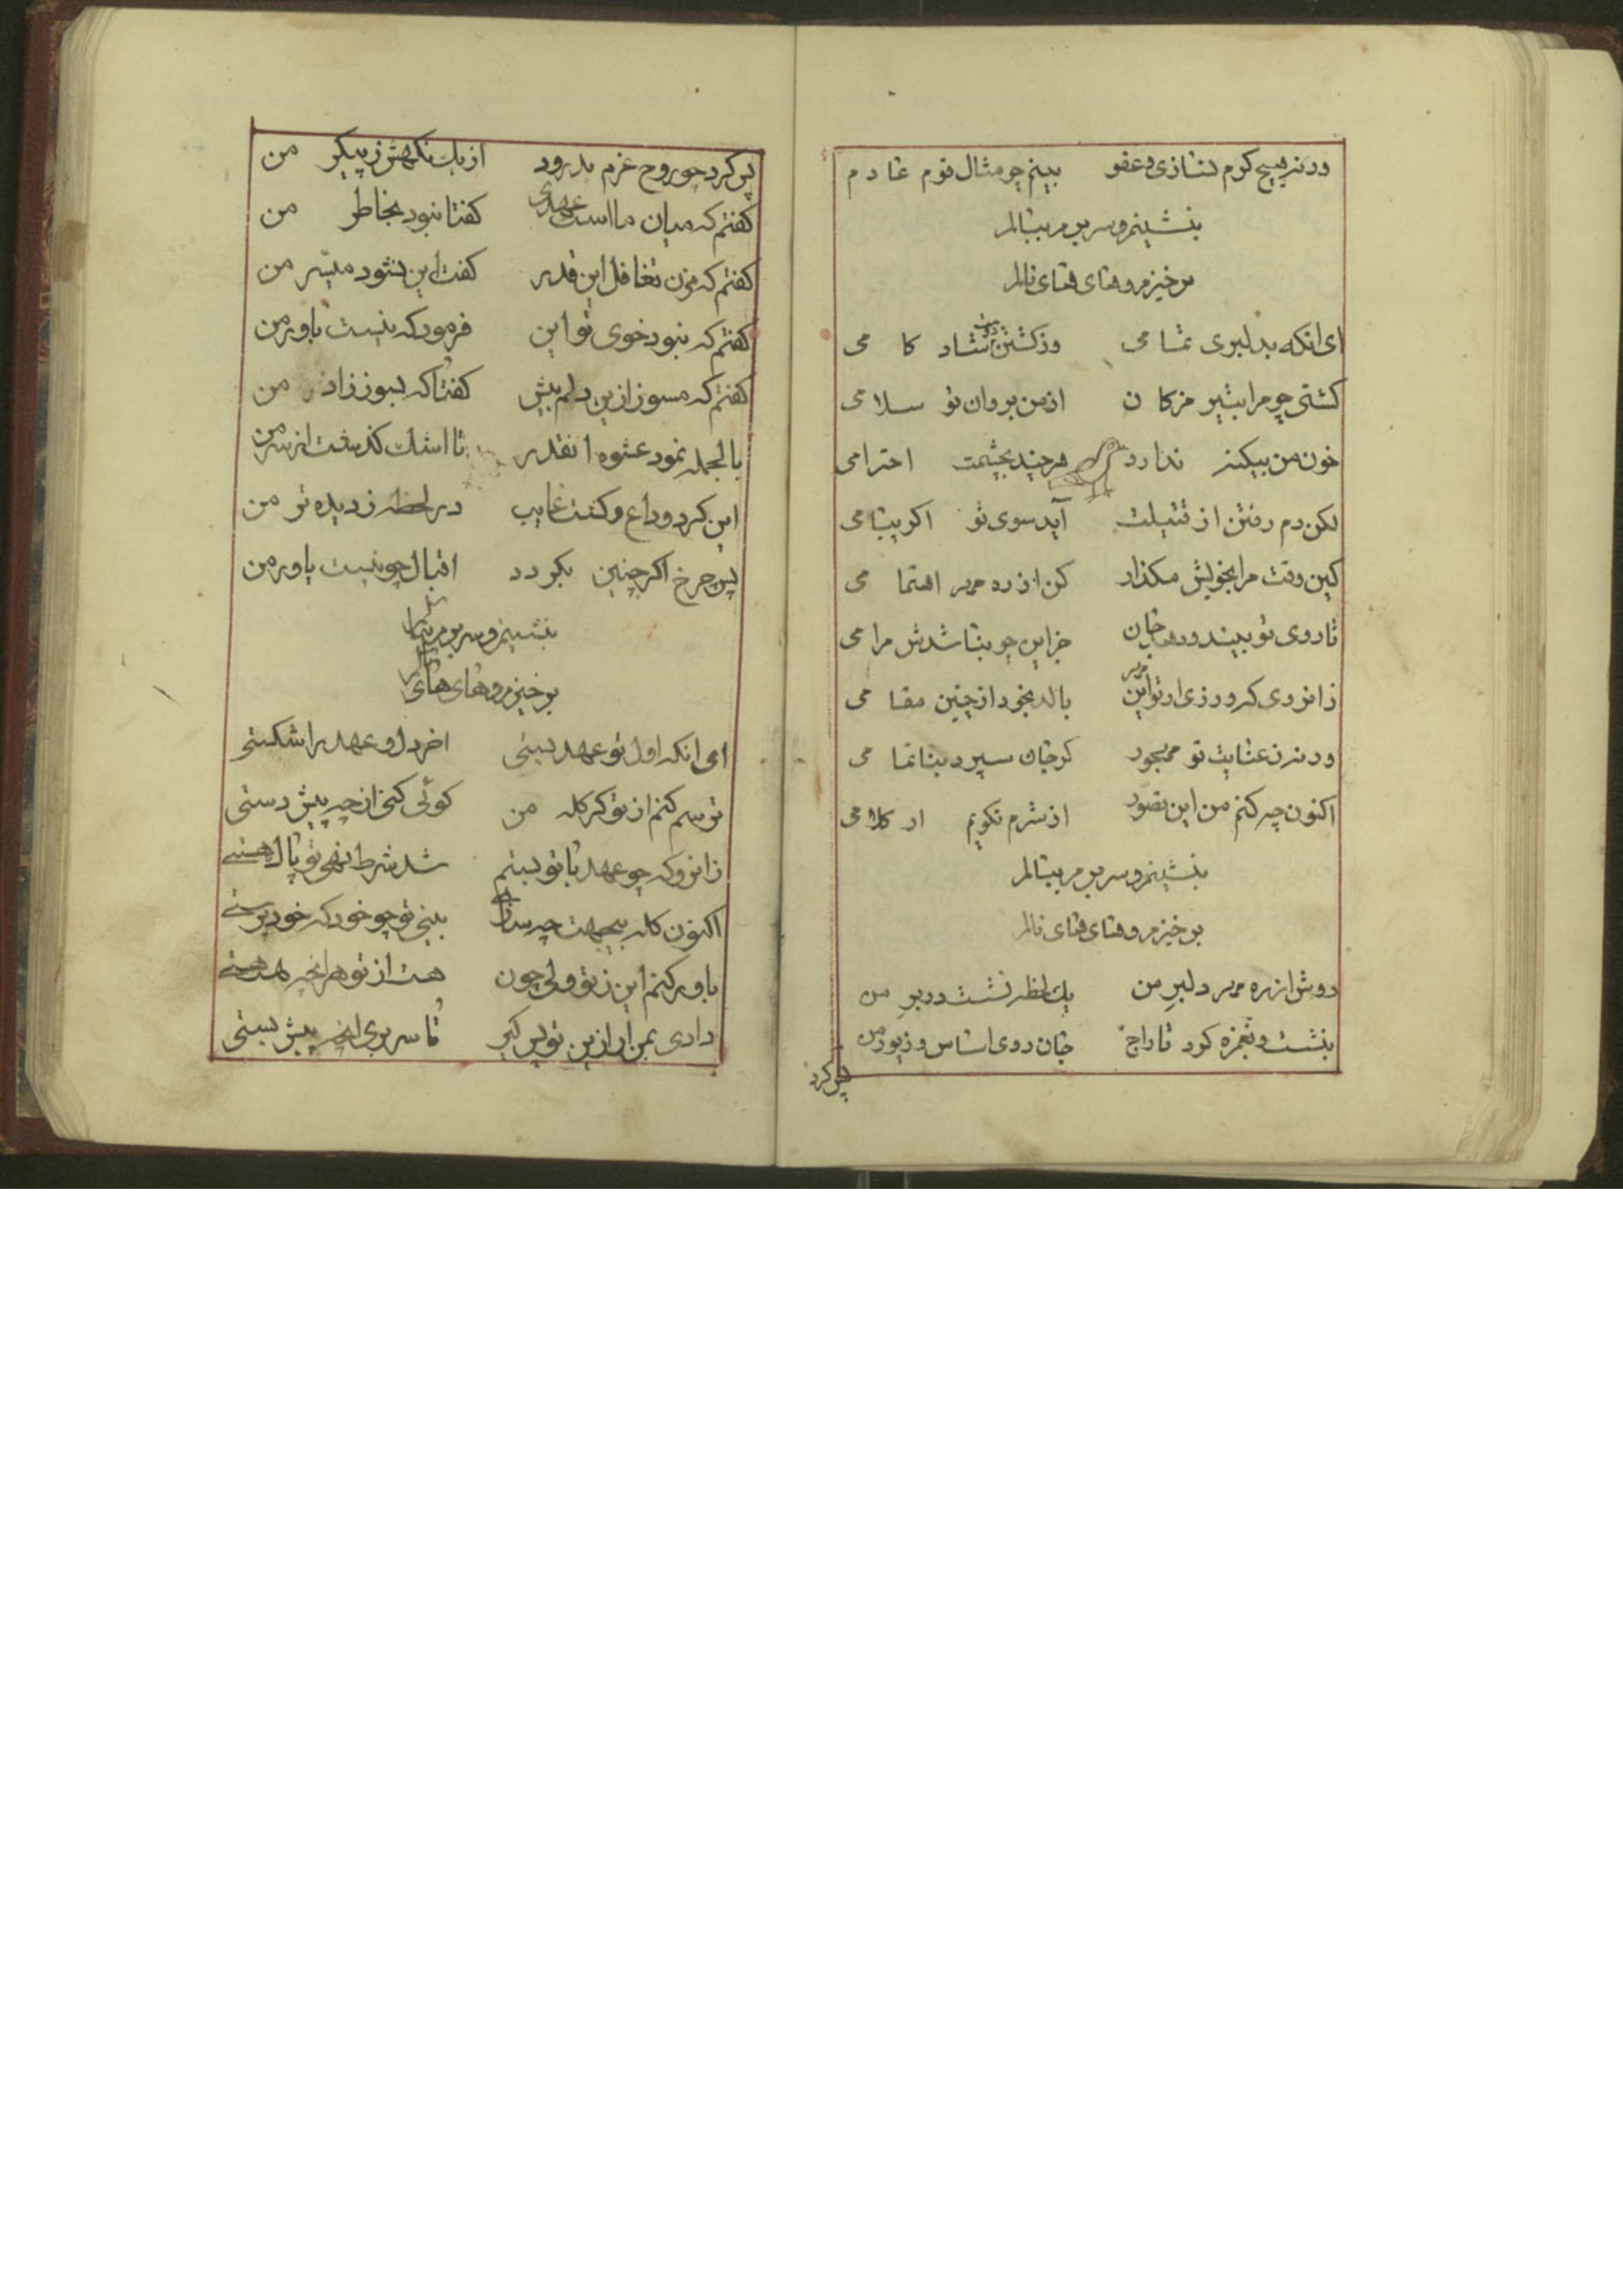 ورنه هیچ کرم نسازی و عفو بینم چو مثال قوم عادم
بنشینم و سر بسر بنالم
برخیزم و های های نالم
ای انکه بدلبری تمامی وز کشتن شاد کامی
کشتی چو مرا بتیر مژکان از من بروان تو سلامی
خون من بیکنه ندارد هرچند بچشمت احترامی
لکن دم رفتن از قتیلت آید سوی تو اکر پیامی
کین وقت مرا بخویش مکذار کن از ره مهر اهتمامی
تا روی تو بیند و دهد جان جز این چو نباشدش مرامی
زانروی که ورزی ار تو این مهر بالد بخود از چنین مقامی
ورنه ز عنایت تو مهجور کر جان سپرد بناتمامی
اکنون چه کنم من این تصور از شرم نکویم ار کلامی
بنشینم و سر بسر بنالم
برخیزم و های های نالم
دوش از ره مهر دلبر من یک لحظه نشست در بر من
بنشست و بغمزه کرد تاراج جان و دی اساس و زیور من
پس کرد
پس کرد چو روح عزم بدرود از یک نکهش ز پیکر من
کفتم که میان ما است عهدی کفتا نبود بخاطر من
کفتم که مزن تغافل این قدر کفت این نشود میسر من
کفتم که نبود خوی تو این فرمود که نیست باور من
کفتم که مسوز ازین دلم بیش کفتا که بسوز زاذر من
بالجمله نمود عشوه انقدر تا اشک کذشت از سر من
این کرد وداع و کشت غایب در لحظه ز دیده تر من
پس چرخ اکر چنین بکردد اقبال چو نیست یاور من
بنشینم و سر بسر بنالم
برخیزم و های های نالم
ای انکه اول تو عهد بستی اخر دل و عهد را شکستی
ترسم کنم از تو کر کله من کوئی کنی از چه پیش دستی
زانرو که چو عهد با تو بستم شد شرط نهی تو پا ل هستی
اکنون کله بیجهت چه سازی بینی تو چو خود که خود پرستی
باور کنم این ز تو ولی چون هست از تو هر انچه هست هستی
داری بمن ار ازین تو پس کبر تا سر بری انچه پیش بستی